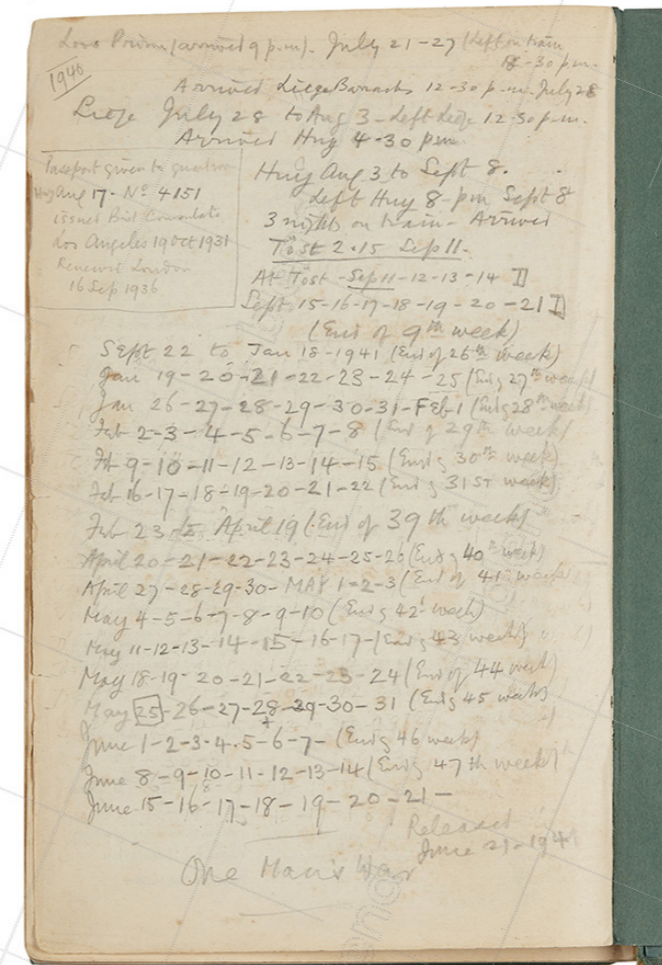 Loos Prison (arrived 9 p.m). July 21-27 (Left on train
8-30 pm.
1940
Arrived Liege Barracks 12-30 p.m. July 28
Liege July 28 to Aug 3 - Left Liege 12-30 p.m.
Arrived Huy 4-30 pm
Passport given to
Huy Aug 17 - No 4151
issued Brit Consulate
Los Angeles 19 Oct 1931
Renewed London
16 Sep 1936
Huy Aug 3 to Sept 8.
Left Huy 8-pm Sept 8
3 nights on train - Arrived
Tost 2.15 Sep 11.
At Tost - Sep 11-12-13-14
Sept 15-16-17-18-19-20-21
(End of 9th week)
Sept 22 to Jan 18-1941 (End of 26th week)
Jan 19-20-21-22-23-24-25 (End of 27th week)
Jan 26-27-28-29-30-31-Feb-1 (End of 28th week)
Feb 2-3-4-5-6-7-8 (End of 29th week)
Feb 9-10-11-12-13-14-15 (End of 30th week)
Feb 16-17-18-19-20-21-22 (End of 31st week)
Feb 23 to April 19 (End of 39th week)
April 20-21-22-23-24-25-26 (End of 40th week)
April 27-28-29-30-MAY 1-2-3 (End of 41st week)
May 4-5-6-7-8-9-10 (End of 42 week)
May 11-12-13-14-15-16-17-(End of 43 week)
May 18-19-20-21-22-23-24 (End of 44 week)
May 25-26-27-28-29-30-31 (End of 45 week)
June 1-2-3-4-5-6-7- (End of 46 week)
June 8-9-10-11-12-13-14 (End of 47th week)
June 15-16-17-18-19-20-21-
Released
June 21-1941
One Man's War